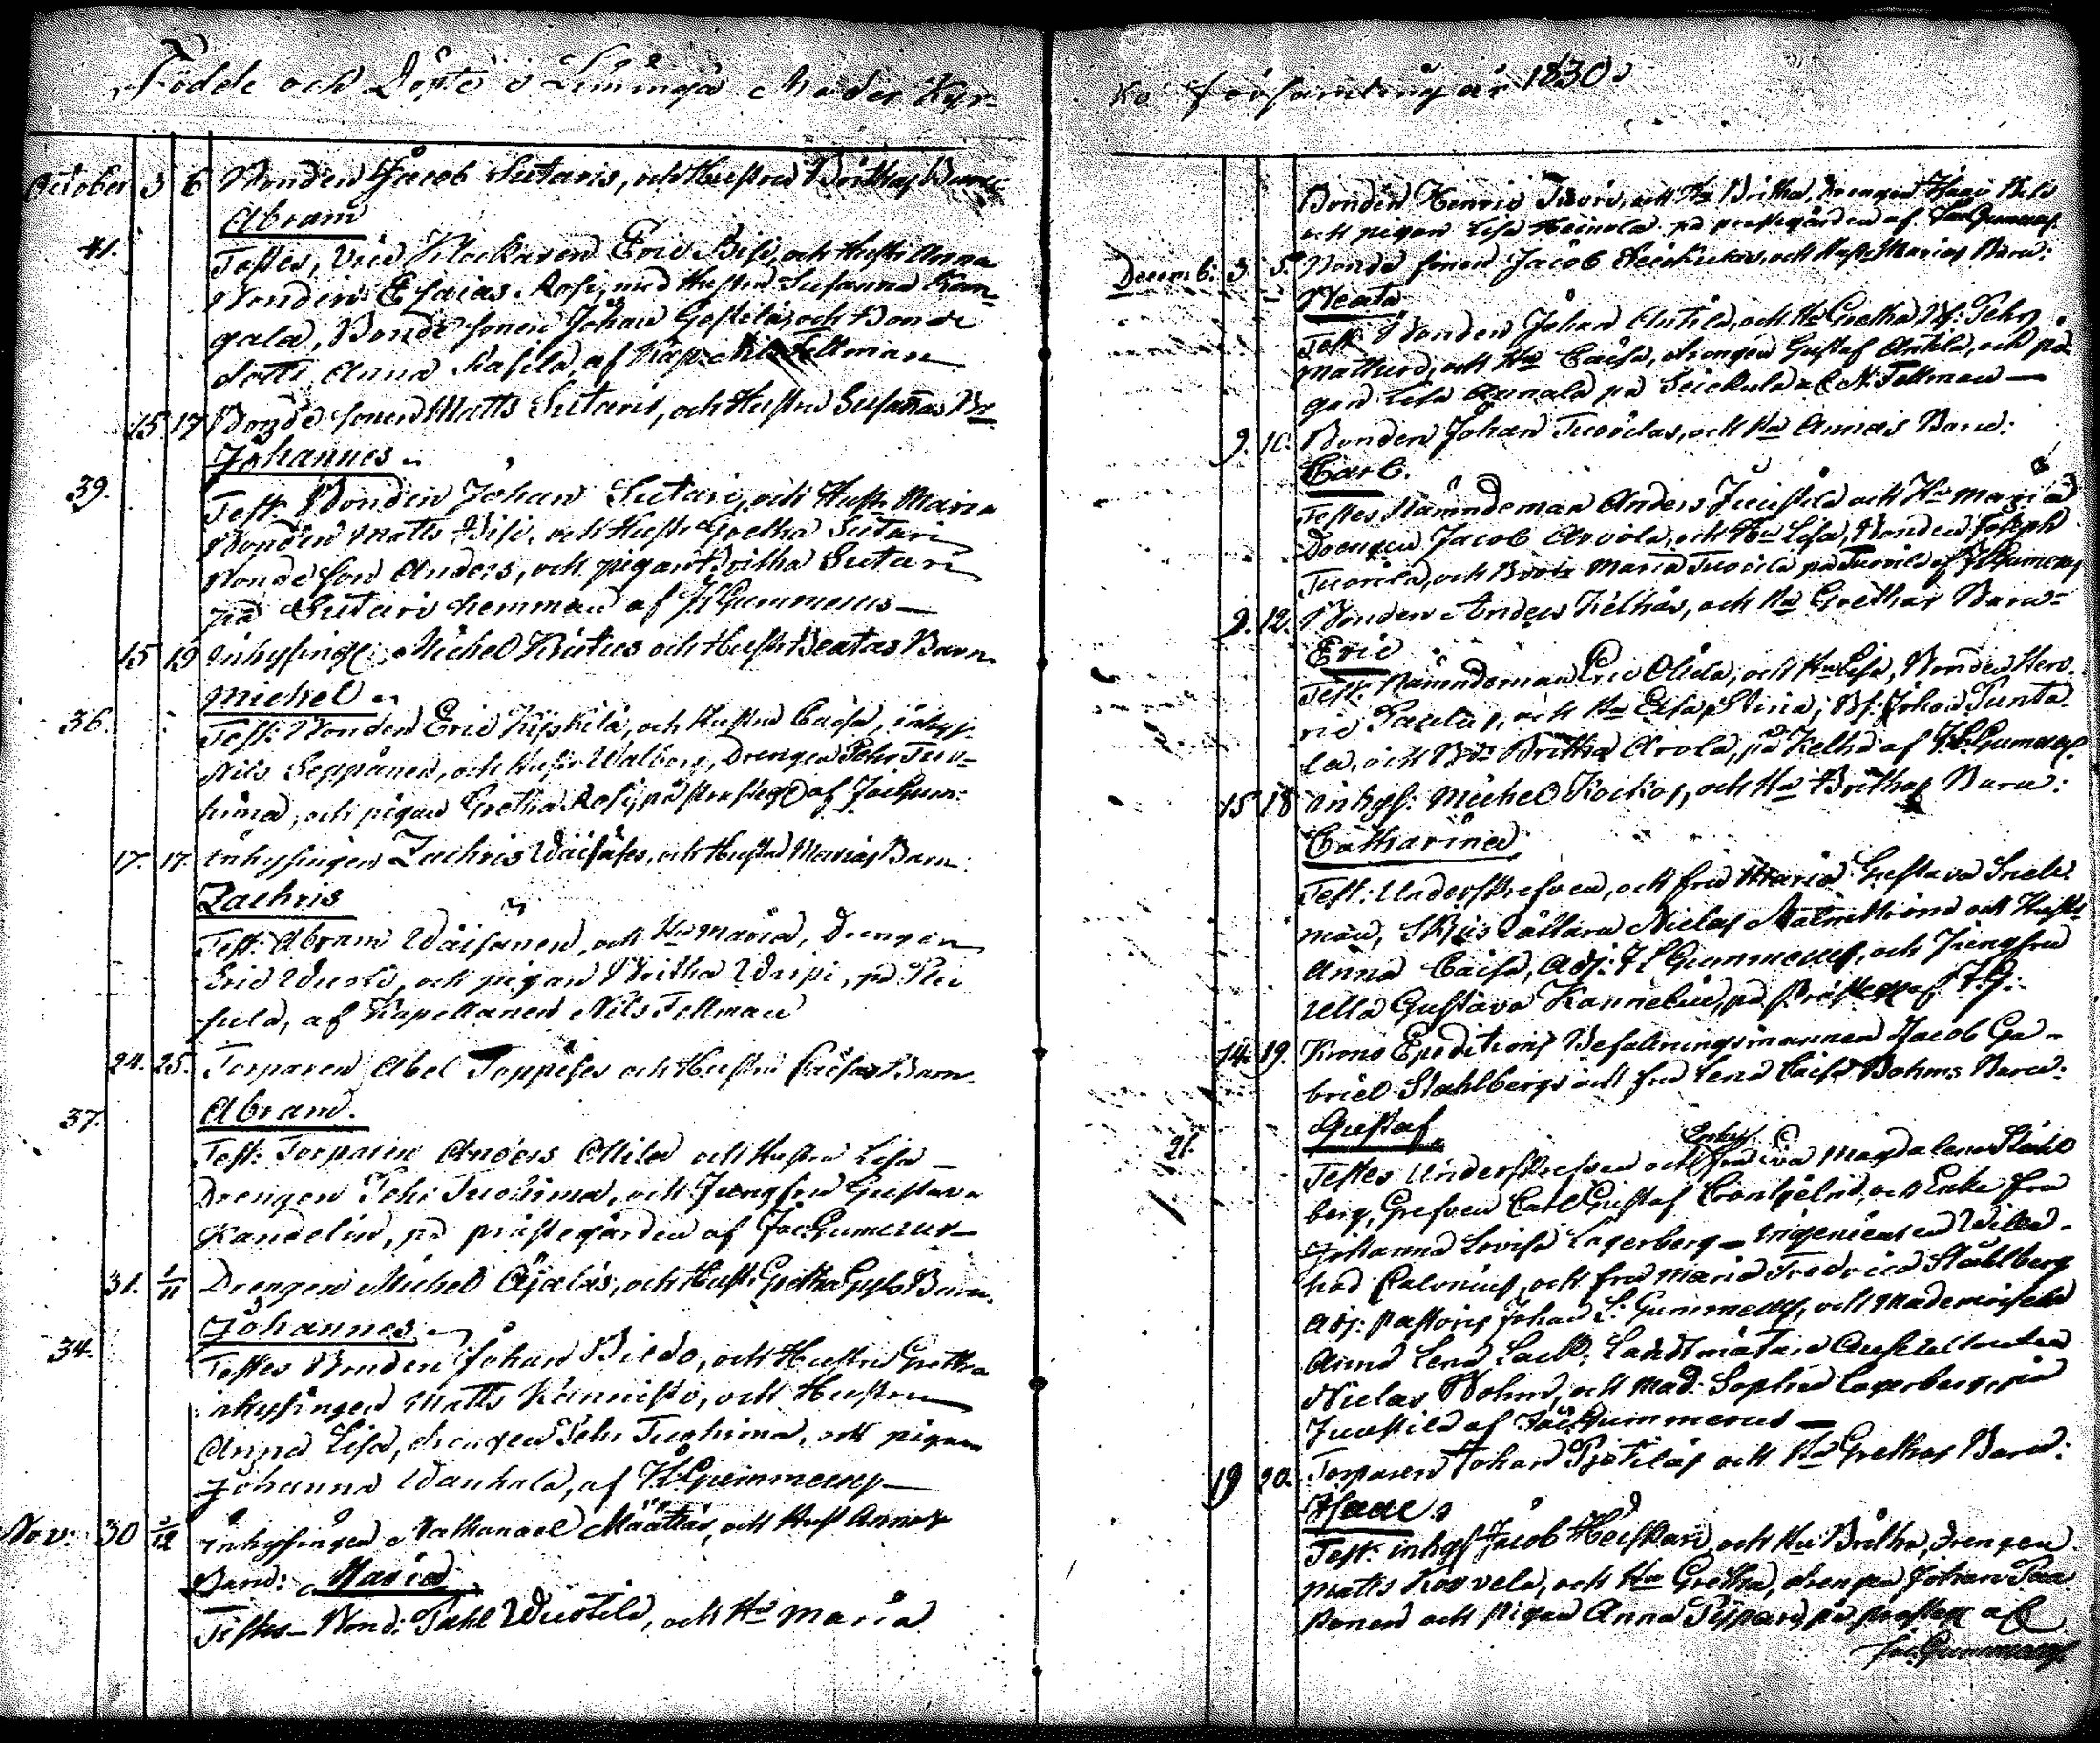 Födde och Döpte i Limingo Moder Kyr-
October 5 6 Bonden Jacob Sutaris, och Hustru Brithas Barn
Abram
41.
Testes, Vice Klockaren Eric Bisi, och Hustr Anna
Bonden Esaias Rosi, med Hustru Susanna Kan-
gala, Bonde sonen Johan Gestilä, och Bonde
dottr Anna Kasila, af Kap. Nils Fellman
15 17 Bonde sonen Matts Sutaris, och Hustru Susannas Br
Johannes
39.
Test: Bonden Johan Sutari, och Hustr Maria
Bonden Matts Bisi, och Hustr Gretha Sutari
Bonde son Anders, och pigan Britha Sutari
på Sutari hemman af J Gummerus
15 19 Inhysing: Michel Kuitus och Hustr Beatas Barn
Michel
36.
Test: Bonden Eric Kyökilä, och Hustru Caisa, inhys:
Nils Seppänen, och Hustr Walborg, Drengen Pehr Tuo-
hima, och pigan Gretha Rosi, på Prästeg af Jac Gum:
17. 17 Inhysingen Zachris Wäisäses, och Hustru Marias Barn
Zachris
Test: Abram Wäisänen, och Hu Maria, Drengen
Eric, och pigan Britha, på
, af Kapellanen Nils Fellman
24. 25. Torparen Abel Toppises och Hustru Caisas Barn.
Abram.
37.
Test: Torparen Anders Ollila och Hustru Lisa
Drengen Pehr Tuohima, och Jungfru Gustava
Kandelin, på prästegården af Jac Gumerus
31. 1/11 Drengen Michel Äjaläs, och Hust: Gretha Barn.
Johannes
34.
Testes Bonden Johan Biedo, och Hustru Gretha
inhysingen Matts Kannisto, och Hustru
Anna Lisa, drengen Pehr Tuohima, och pigan
Johanna Wanhala, af Gummerus
Nov: 30 3/12 Inhysingen Nathanael Määttäs, och Hust Annas
Barn: Maria
Testes Bond: Pahl Wuotila, och Hu Maria
ko församling år 1830.
Bonden Henric Tuori, och Hu Britha, drengen
och pigan Lisa Heinola på prestegården af Jac Gummerus
Decemb: 3. 5. Bonde sonen Jacob Leickukas, och Hustr Marias Barn:
Beata
Test: Bonden Johan Antila, och Hu Gretha, Bs: Pehr
Matturo, och Hu Caisa, drengen Gustaf Antila, och pi
gan Lisa Annala på Leickula af N. Fellman
9. 10. Bonden Johan Tuorilas, och Hu Annas Barn:
Carl.
Testes Nämndeman Anders Juustila och Hu Maria
Drengen Jacob Arvola, och Hu Lisa, Bonden Joseph
Tuorila, och Maria Tuorila på Tuorila af J Gumerus
9. 12. Bonden Anders Kelhäs, och Hu Grethas Barn:
Eric
Test: Nämndeman Eric Olida, och Hu Lisa, Bonden Hen
ric Paulus, och Hu Elsa Stina, Bs: Johan Junto
la, och Britha Arola, på Kelhä af Gumerus.
15 18 Inhys: Michel Kockos, och Hu Brithas Barn:
Catharina
Test: Underskrefven, och fru Maria Gustava Snell
man, Skjuslättaren Niclas Malmström och Hustr
Anna Caisa, Adj: J L Gummerus, och Jungfru
Ulla Gustava Kannelin, på Prästeg af J.G:
14. 19. Krono Expeditions Befalningsmannen Jacob Ga-
briel Stahlbergs och fru Lena Caisa Bohms Barn:
Gustaf
21.
Testes Underskrefven och Enkef fru Eva Magdalena Ståhl
berg, Grefven Carl Gustaf Cronhjelm, och Enke fru
Johanna Lovisa Lagerberg Ingenieuren Wilhel-
had Calonius, och fru Maria Fredrica Ståhlberg
Adj: Pastoris Johan L: Gummerus, och Mademoiselle
Anna Lena Lackl, Landtmätare Auscultanten
Niclas Bohm, och Mad: Sophia Lagerberg, på
Juustila af Jac Gummerus
19 20. Torparen Johan Pjetiläs och Hu Grethas Barn:
Isaac
Test: inhys Jacob Heiskari, och Hu Britha, drengen
Matts Korvela, och Hu Gretha, drengen Johan Paa
konen och pigan Anna Pyypari, på prästeg af
Jac: Gummerus